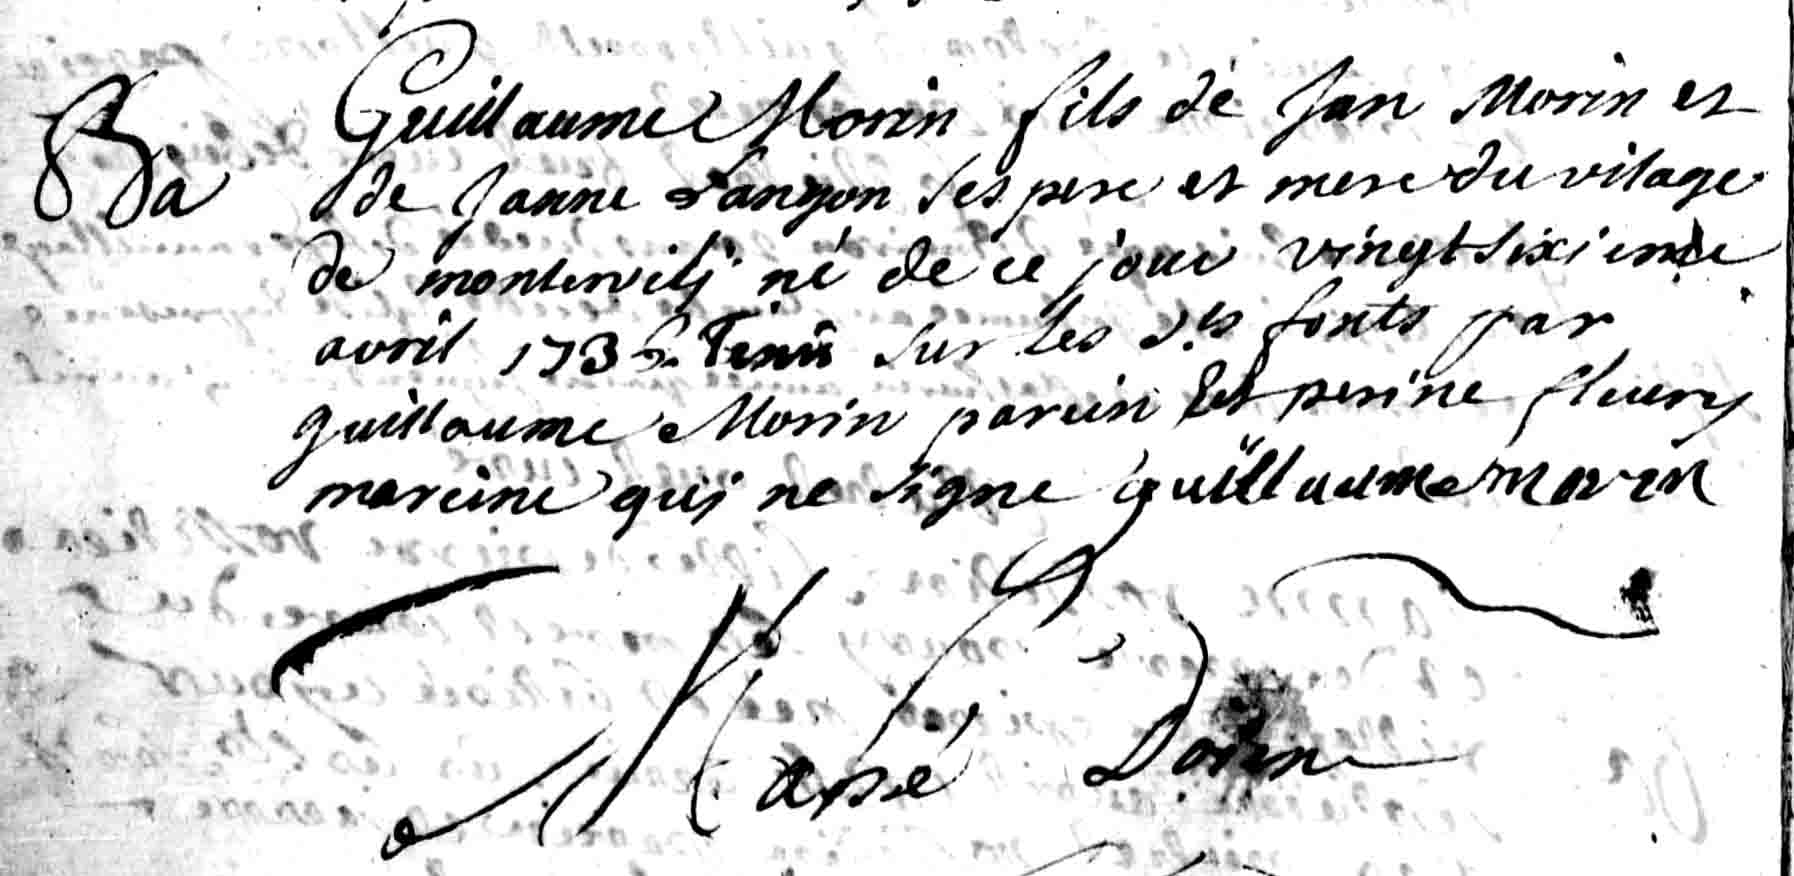 Ba
Guillaume Morin fils de Jan Morin et
de Janne Langon ses pere et mere du vilage
de montervilj né de ce jour vingt sixieme
avril 173 Tenu sur les d.ts fonts par
guillaume Morin parein Et perine fleury
mareine quj ne signe guillaume morin
Massé Doien